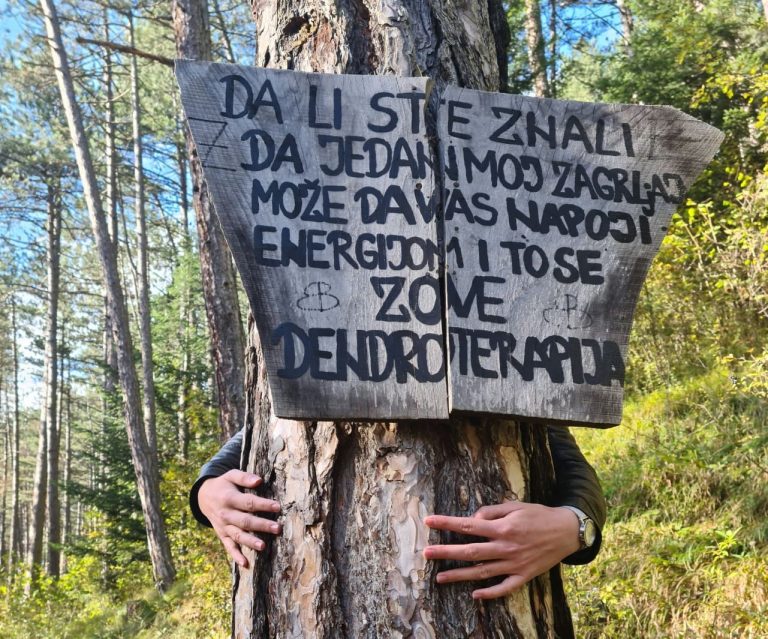 DA LI STE ZNALI
DA JEDAN MOJ ZAGRLJAJ
MOŽE DA VAS NAPOJI
ENERGIJOM I TO SE
ZOVE
DENDROTERAPIJA